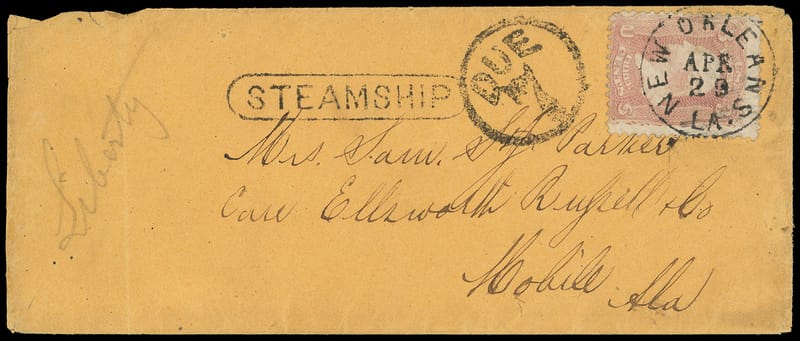 NEW ORLEANS LA.
APR
29
DUE 7
STEAMSHIP
Liberty
Mrs. Sam. St. Jno. Parker
Care Ellsworth Russell & Co
Mobile Ala